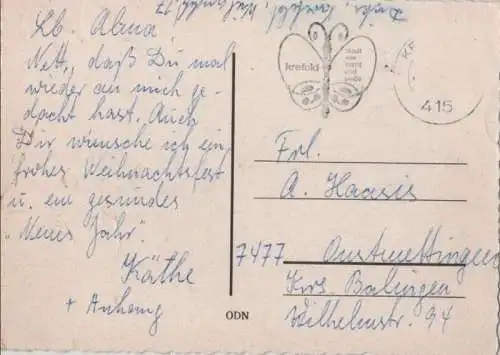 Lb. Alma
Nett, daß Du mal
wieder an mich ge-
dacht hast. Auch
Dir wünsche ich ein
frohes Weihnachtsfest
u. ein gesundes
„Neues Jahr".
Käthe
+ Anhang
krefeld
Stadt
wie
Samt
und
Seide
KR
415
Frl.
A. Haasis
7477 Onstmettingen
Krs. Balingen
Wilhelmstr. 94
ODN